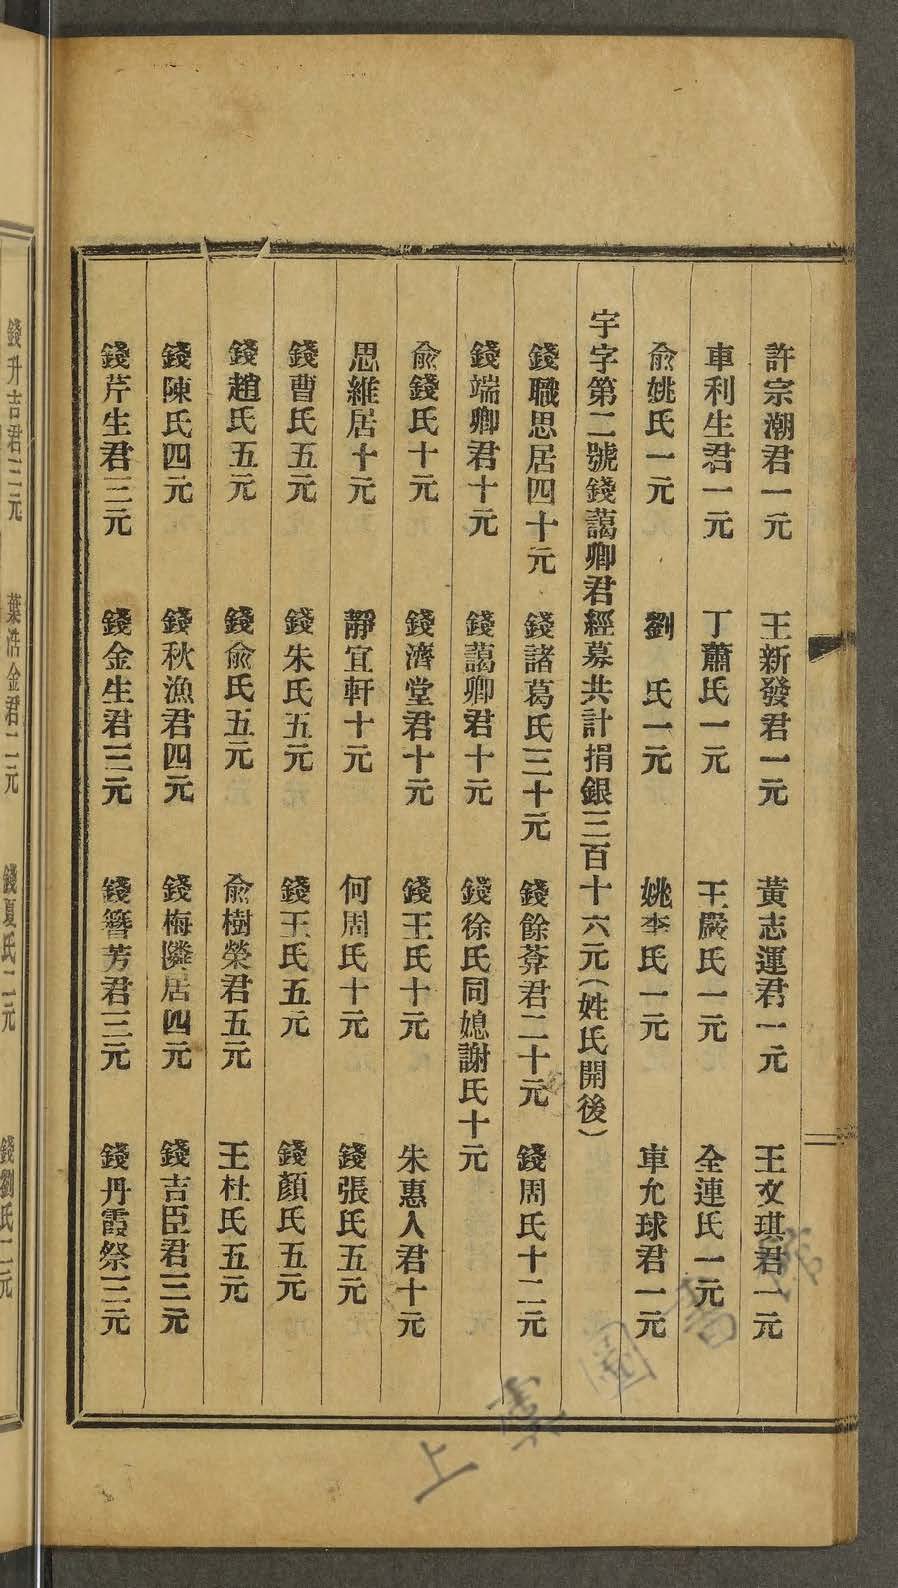 許宗潮君一元　王新發君一元　黃志運君一元　王文琪君一元
車利生君一元　丁蕭氏一元　王嚴氏一元　全連氏一元
俞姚氏一元　劉　氏一元　姚李氏一元　車允球君一元
宇字第二號錢藹卿君經募共計捐銀三百十六元（姓氏開後）
錢職思居四十元　錢諸葛氏三十元　錢餘葊君二十元　錢周氏十二元
錢端卿君十元　錢藹卿君十元　錢徐氏同媳謝氏十元
俞錢氏十元　錢濟堂君十元　錢王氏十元　朱惠人君十元
思維居十元　靜宜軒十元　何周氏十元　錢張氏五元
錢曹氏五元　錢朱氏五元　錢王氏五元　錢顏氏五元
錢趙氏五元　錢俞氏五元　俞樹榮君五元　王杜氏五元
錢陳氏四元　錢秋漁君四元　錢梅隣居四元　錢吉臣君三元
錢芹生君三元　錢金生君三元　錢簪芳君三元　錢丹霞祭三元
錢升吉君三元　葉浩金君二元　錢夏氏二元　錢劉氏二元
上虞圖書館